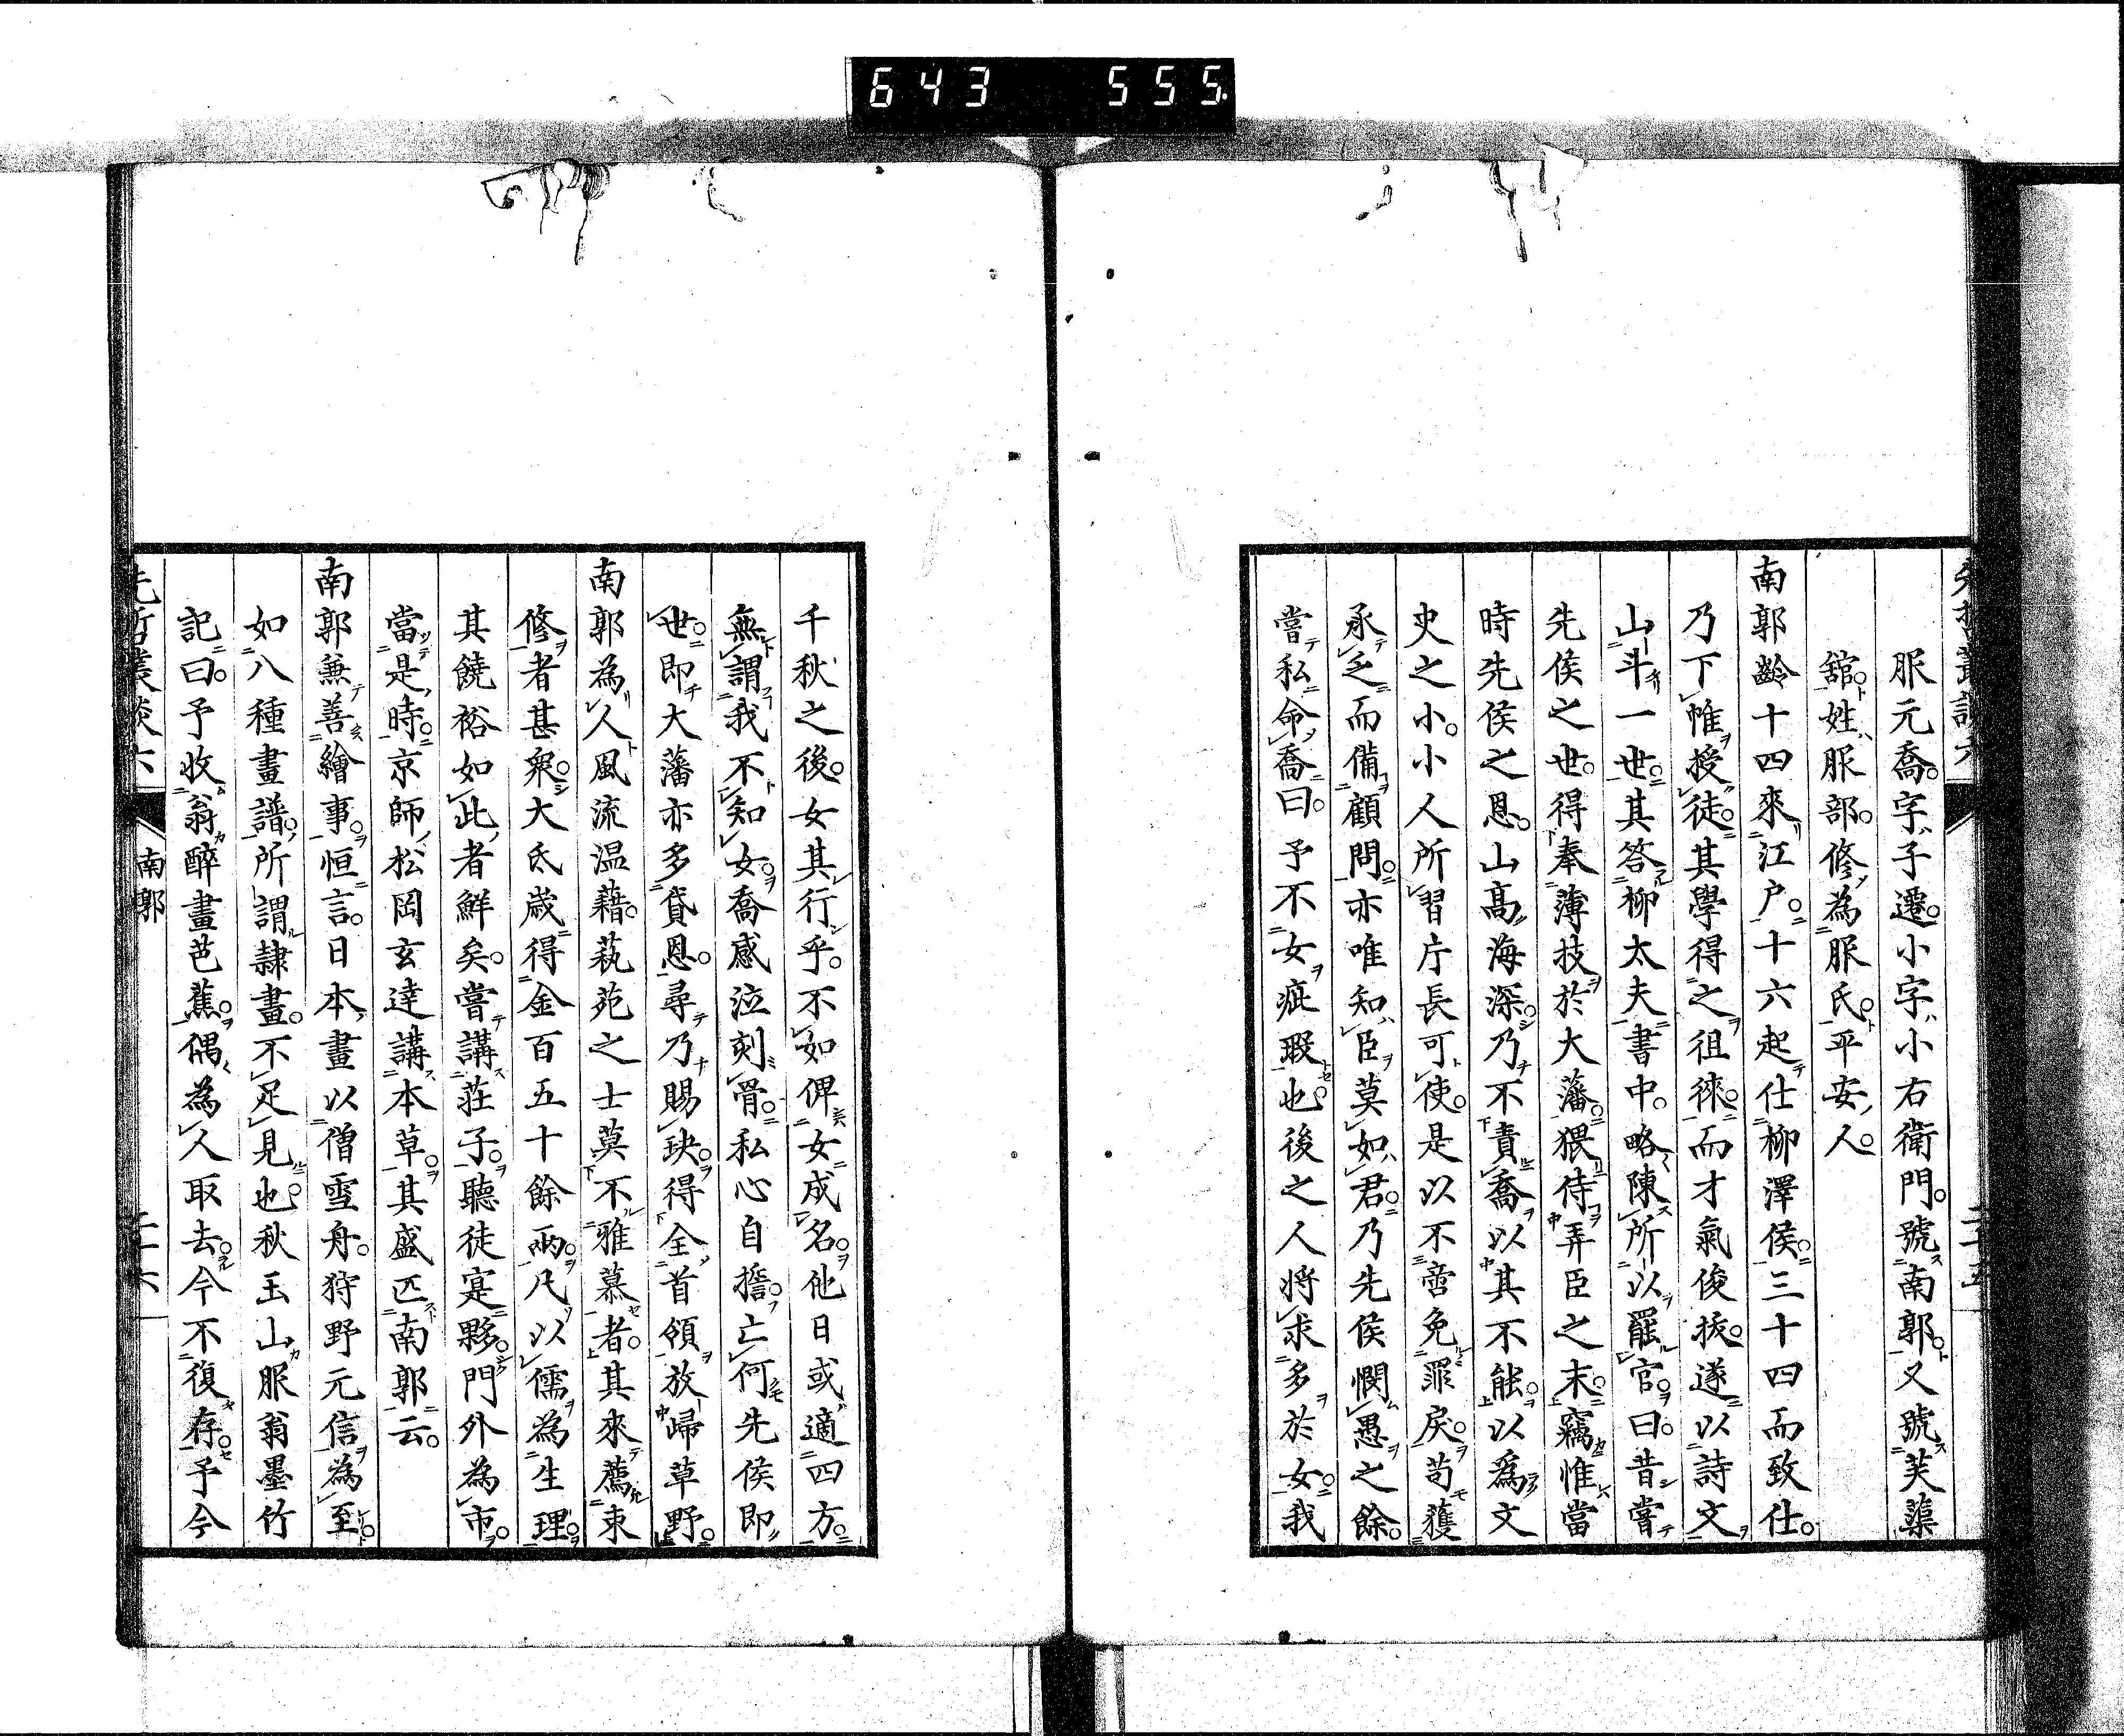 643 555.
先哲叢談六 二十五
服元喬。字子遷。小字小右衛門。號南郭。又號芙蕖
館。姓服部。修為服氏。平安人。
南郭齡十四來江戶。十六起仕柳澤侯。三十四而致仕。
乃下帷授徒。其學得之徂徠。而才氣俊抜。遂以詩文
山斗一世。其答柳太夫書中。略陳所以罷官。曰。昔嘗
先侯之世。得奉薄技於大藩。猥侍弄臣之末。竊惟當
時先侯之恩。山高海深。乃不責喬以其不能。以爲文
史之小。小人所習。庁長可使。是以不啻免罪戾。苟獲
承乏而備顧問。亦唯知臣莫如君。乃先侯憫愚之餘。
嘗私命喬曰。予不女疵瑕也。後之人將求多於女。我
千秋之後。女其行乎。不如俾女成名。他日或適四方。
無謂我不知女。喬感泣刻骨。私心自擔。亡何先侯即
世。即大藩亦多貸恩。尋乃賜玦。得全首領放歸草野。
南郭為人風流温藉。蓺苑之士莫不雅慕者。其來薦束
修者甚衆。大氐歲得金百五十餘兩。凡以儒為生理。
其饒裕如此者鮮矣。嘗講莊子。聽徒寔夥。門外為市。
當是時。京師松岡玄達講本草。其盛匹南郭云。
南郭兼善繪事。恒言。日本畫以僧雪舟。狩野元信為至。
如八種畫譜。所謂隷畫。不足見也。秋玉山服翁墨竹
記曰。予收翁醉畫芭蕉。偶為人取去。今不復存。予今
先哲叢談六 南郭 二十六